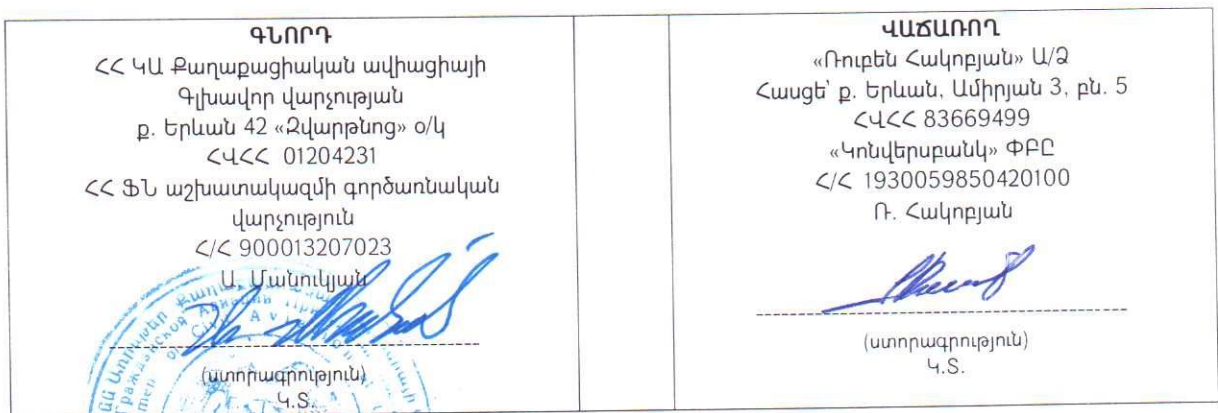 ԳՆՈՐԴ
ՀՀ ԿԱ Քաղաքացիական ավիացիայի
Գլխավոր վարչության
ք. Երևան 42 «Զվարթնոց» օ/կ
ՀՎՀՀ 01204231
ՀՀ ՖՆ աշխատակազմի գործառնական
վարչություն
Հ/Հ 900013207023
Ա. Մանուկյան
(ստորագրություն)
Կ.Տ.
ՎԱՃԱՌՈՂ
«Ռուբեն Հակոբյան» Ա/Ձ
Հասցե՝ ք. Երևան, Ամիրյան 3, բն. 5
ՀՎՀՀ 83669499
«Կոնվերսբանկ» ՓԲԸ
Հ/Հ 1930059850420100
Ռ. Հակոբյան
(ստորագրություն)
Կ.Տ.